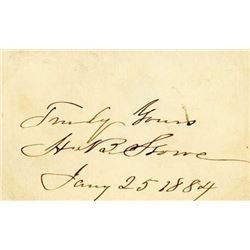 Truly Yours
H. B. Stowe
Jany 25 1884